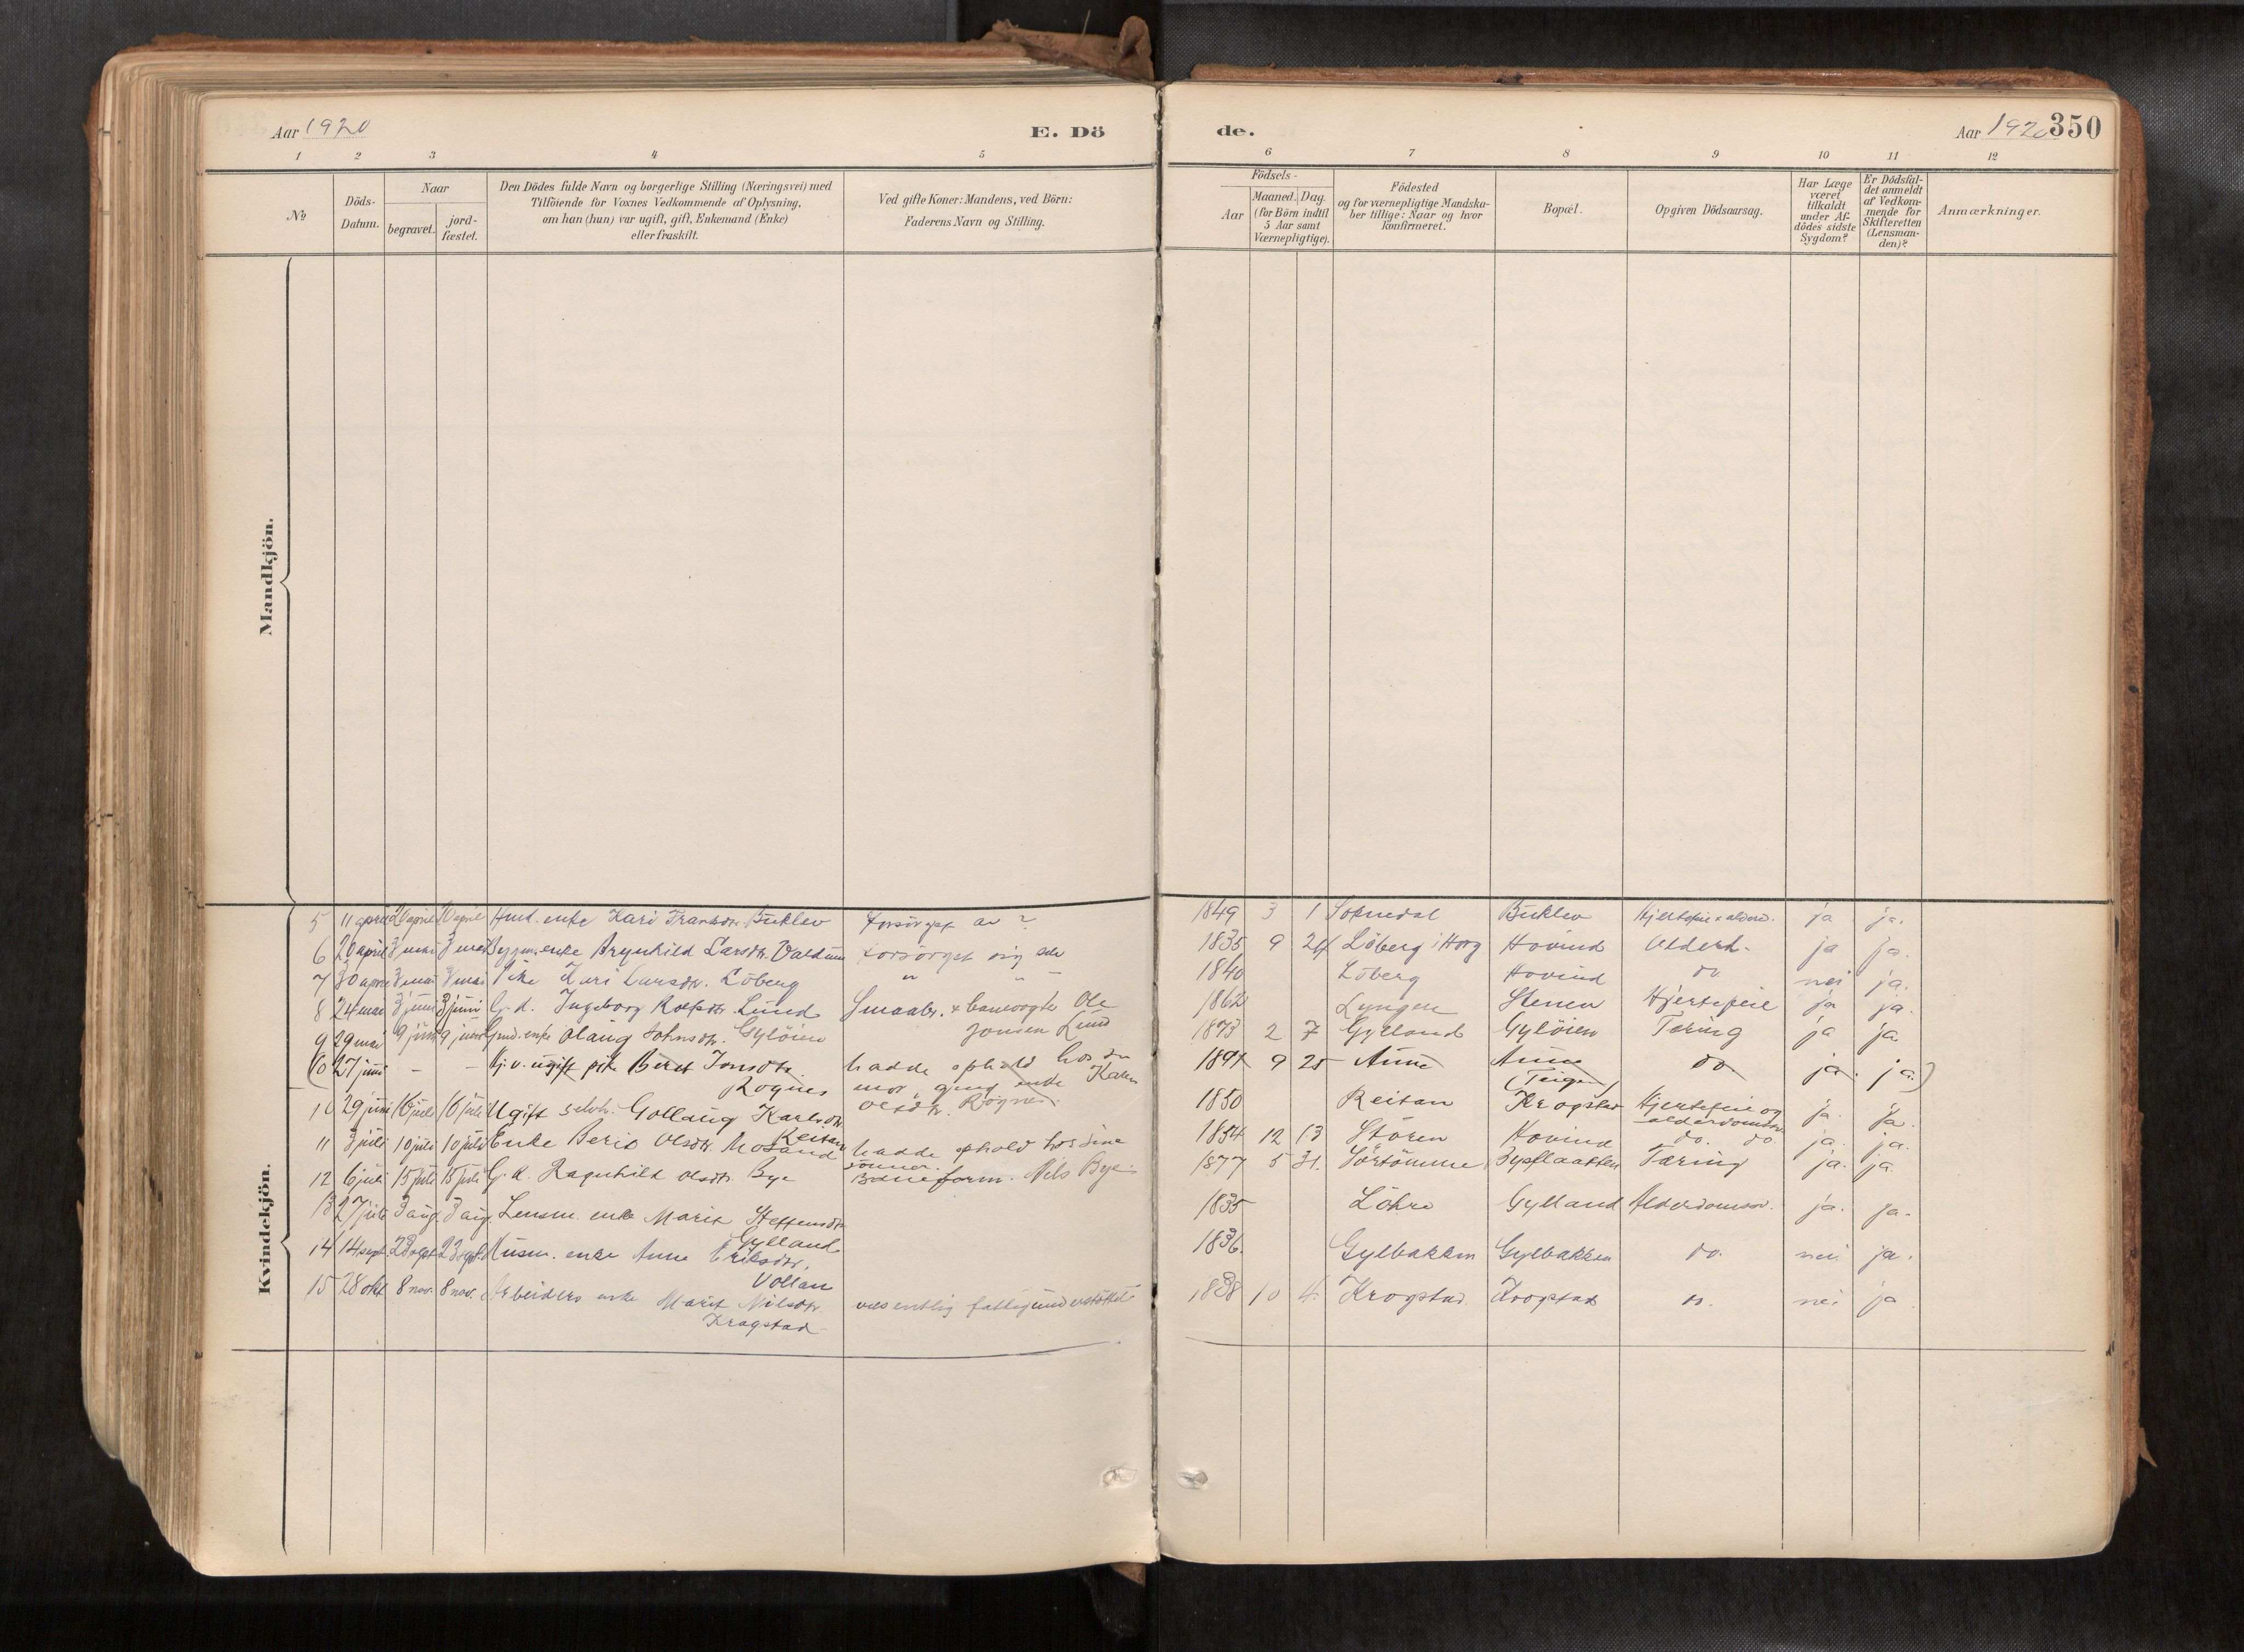 Aar 1920
E. Dö
de.
Aar 1920
350
1 2 3 4 5 6 7 8 9 10 11 12
№
Döds-
Datum.
Naar
begravet.
jord-
fæstet.
Den Dödes fulde Navn og borgerlige Stilling (Næringsvei) med
Tilföiende for Voxnes Vedkommende af Oplysning,
om han (hun) var ugift, gift, Enkemand (Enke)
eller fraskilt.
Ved gifte Koner: Mandens, ved Börn:
Faderens Navn og Stilling.
Födsels-
Aar
Maaned. Dag.
(for Börn indtil
5 Aar samt
Værnepligtige).
Födested
og for værnepligtige Mandska-
ber tillige: Naar og hvor
konfirmeret.
Bopæl.
Opgiven Dödsaarsag.
Har Læge
været
tilkaldt
under Af-
dödes sidste
Sygdom?
Er Dödsfal-
det anmeldt
af Vedkom-
mende for
Skifteretten
(Lensman-
den)?
Anmærkninger.
Mandkjön.
Kvindekjön.
5 11 april 20 april 10 april enke Kari Buklev forsörget av ? 1849 3 1 Soknedal Buklev ja ja.
6 20 april 3 mai 3 mai enke Brynhild Larsdtr. Valdum forsörget sig selv 1835 9 24 Löberg i Horg Hovind Alderd. ja ja.
7 30 april 3 mai 3 mai Pike Kari Larsdtr. Löberg " " 1840 Löberg Hovind do. nei ja.
8 24 mai 3 juni 3 juni G. k. Ingeborg Rolfsdtr. Lund Smaabr. & banevogter Ole
Jonsen Lund 1862 Lyngen Stenen Hjertefeil ja ja.
9 29 mai 9 juni 9 juni Gmd. enke Olaug Johnsdtr. Gylöien 1873 2 7 Gylland Gylöien Tæring ja ja
(10 27 juni - - Hj. v. ugift pike Beret Jonsdtr.
Rognes hadde ophold hos sin
mor, gmd. enke Karen
Olsdtr. Rognes. 1894 9 25 Aune Aune
(Teigen) do ja. ja.)
10 29 juni 16 juli 16 juli Ugift selvh. Gollaug Karlsdtr.
Reitan 1850 Reitan Krogstad Hjertefeil og
alderdomssv. ja. ja.
11 3 juli 10 juli 10 juli Enke Berit Olsdtr. Mosand hadde ophold hos sine
sönner. 1854 12 13 Stören Hovind do. do. ja. ja.
12 6 juli 15 juli 15 juli G. k. Ragnhild Olsdtr. Bye Baneform. Nils Bye. 1877 5 31. Sörtömme Byflaatten Tæring ja. ja.
13 27 juli 3 aug. 3 aug. Lensm. enke Marit Steffensdtr.
Gylland 1835 Löhre Gylland Alderdomssv. ja. ja.
14 14 sept. 23 sept. 23 sept. Husm. enke Anne Eriksdtr.
Vollan 1836. Gylbakken Gylbakken do. nei. ja.
15 28 okt 8 nov. 8 nov. Arbeiders enke Marit Nilsdtr.
Krogstad væsentlig fattigunderstöttet 1838 10 4. Krogstad Krogstad nei ja